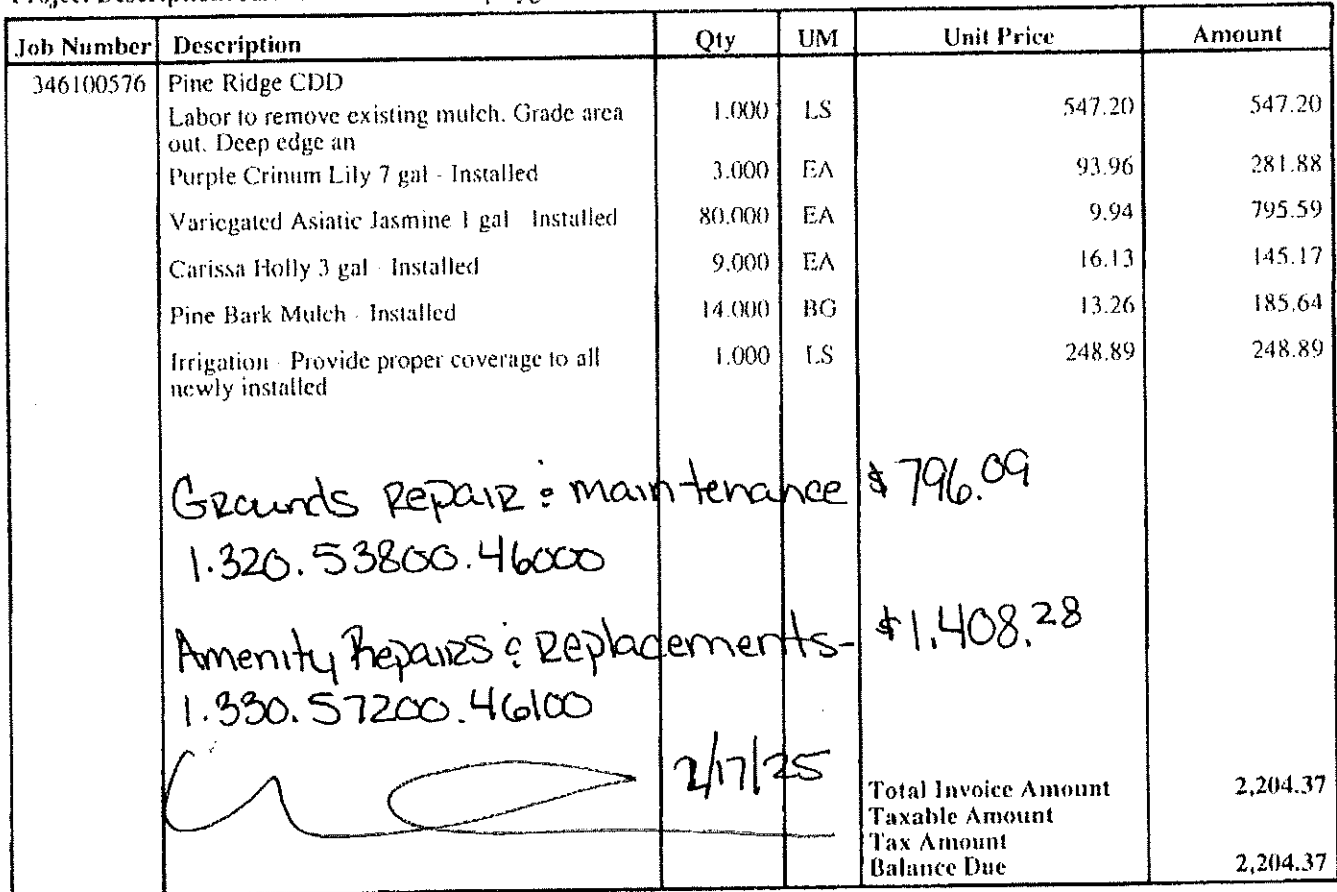 Job Number Description Qty UM Unit Price Amount
346100576 Pine Ridge CDD
Labor to remove existing mulch. Grade area 1.000 LS 547.20 547.20
out. Deep edge an
Purple Crinum Lily 7 gal - Installed 3.000 EA 93.96 281.88
Variegated Asiatic Jasmine 1 gal - Installed 80.000 EA 9.94 795.59
Carissa Holly 3 gal - Installed 9.000 EA 16.13 145.17
Pine Bark Mulch - Installed 14.000 BG 13.26 185.64
Irrigation - Provide proper coverage to all 1.000 LS 248.89 248.89
newly installed
Grounds Repair & maintenance $796.09
1.320.53800.46000
Amenity Repairs & Replacements- $1,408.28
1.330.57200.46100
2/17/25
Total Invoice Amount 2,204.37
Taxable Amount
Tax Amount
Balance Due 2,204.37